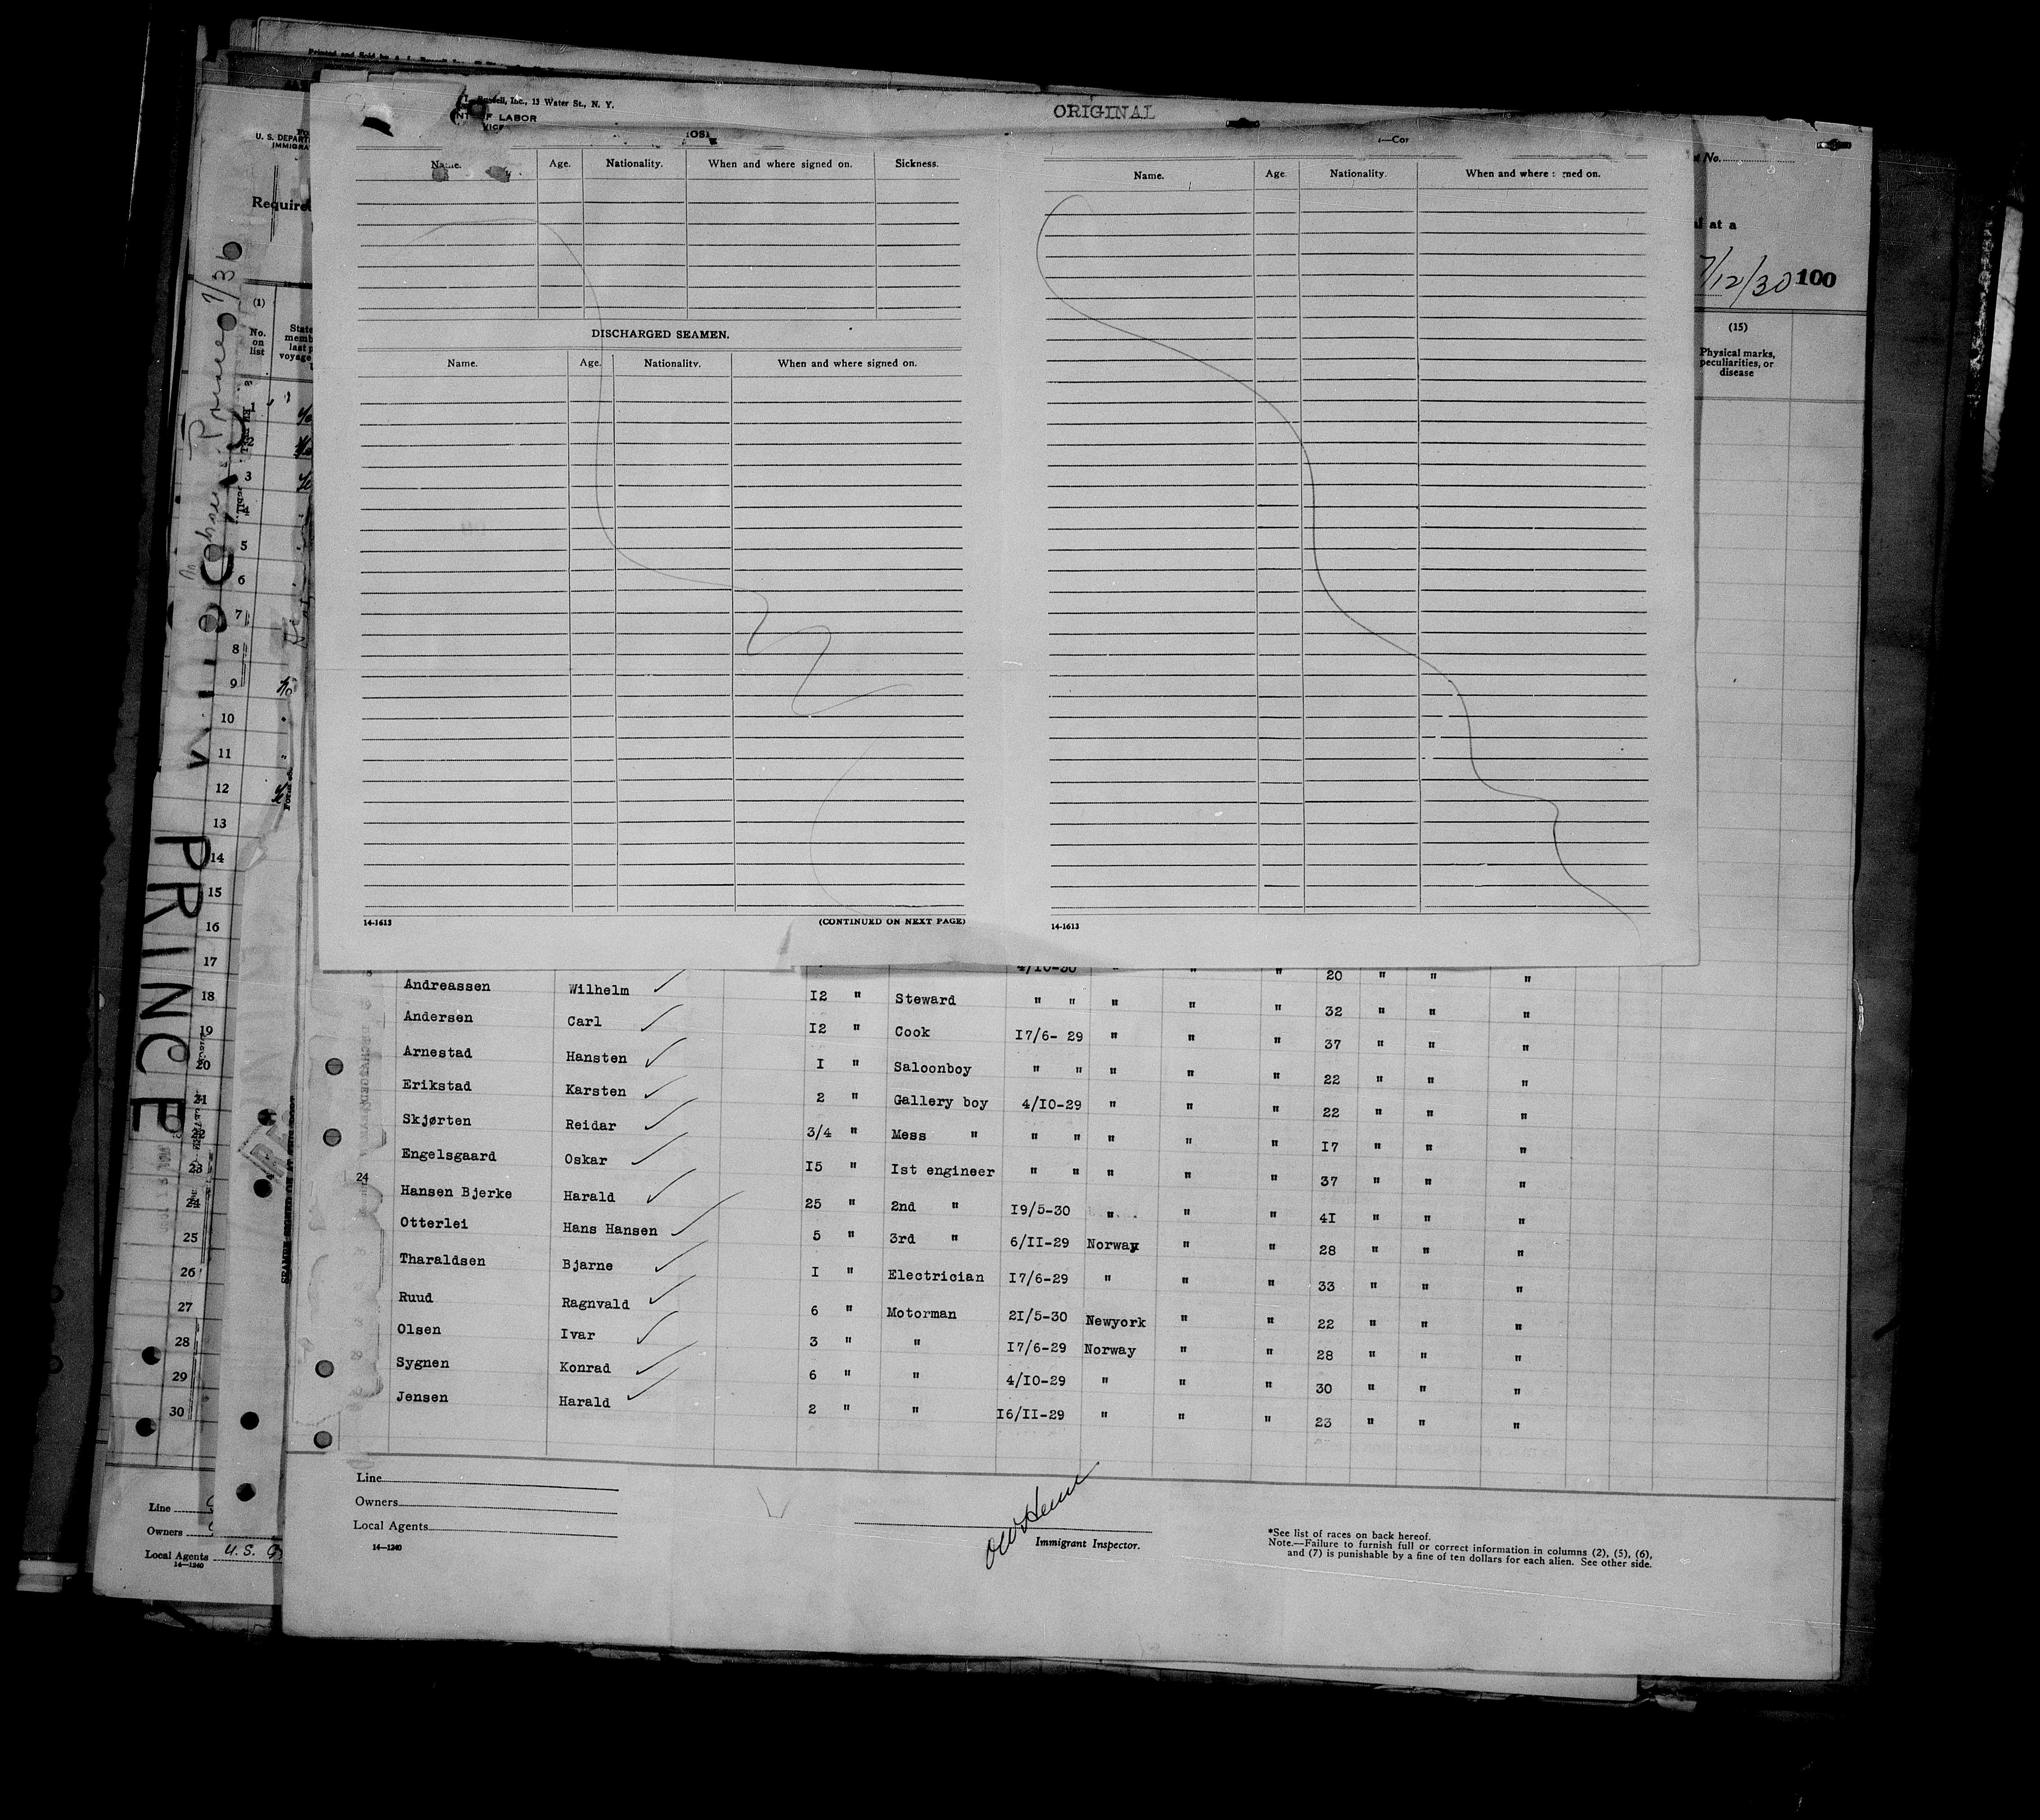 Printed and Sold by A. L.
Russell, Inc., 13 Water St., N. Y.
OF LABOR
ORIGINAL
Name. Age. Nationality. When and where signed on. Sickness.
DISCHARGED SEAMEN.
Name. Age. Nationality. When and where signed on.
14-1613 (CONTINUED ON NEXT PAGE)
Name. Age. Nationality. When and where signed on.
14-1613
U. S. DEPART
IMMIGRA
Require
No.
al at a
7/12/30 100
(1)
No. on list
State
memb
last p
voyage
(15)
Physical marks, peculiarities, or disease
1
2
3
4
5
6
7
8
9
10
11
12
13
14
15
16
17
18
19
20
21
22
23
24
25
26
27
28
29
30
PRINCE
4/10-30 " " " 20 " " "
Andreassen Wilhelm 12 " Steward " " " " " 32 " " "
Andersen Carl 12 " Cook 17/6- 29 " " " 37 " " "
Arnestad Hansten 1 " Saloonboy " " " " " 22 " " "
Erikstad Karsten 2 " Gallery boy 4/10-29 " " " 22 " " "
Skjørten Reidar 3/4 " Mess " " " " " " 17 " " "
Engelsgaard Oskar 15 " 1st engineer " " " " " 37 " " "
24 Hansen Bjerke Harald 25 " 2nd " 19/5-30 " " " 41 " " "
Otterlei Hans Hansen 5 " 3rd " 6/11-29 Norway " " 28 " " "
Tharaldsen Bjarne 1 " Electrician 17/6-29 " " " 33 " " "
Ruud Ragnvald 6 " Motorman 21/5-30 Newyork " " 22 " " "
Olsen Ivar 3 " " 17/6-29 Norway " " 28 " " "
Sygnen Konrad 6 " " 4/10-29 " " " 30 " " "
Jensen Harald 2 " " 16/11-29 " " " 23 " " "
Line
Owners
Local Agents
14—1240
Immigrant Inspector.
*See list of races on back hereof.
Note.—Failure to furnish full or correct information in columns (2), (5), (6),
and (7) is punishable by a fine of ten dollars for each alien. See other side.
Line
Owners
Local Agents U. S.
14—1240